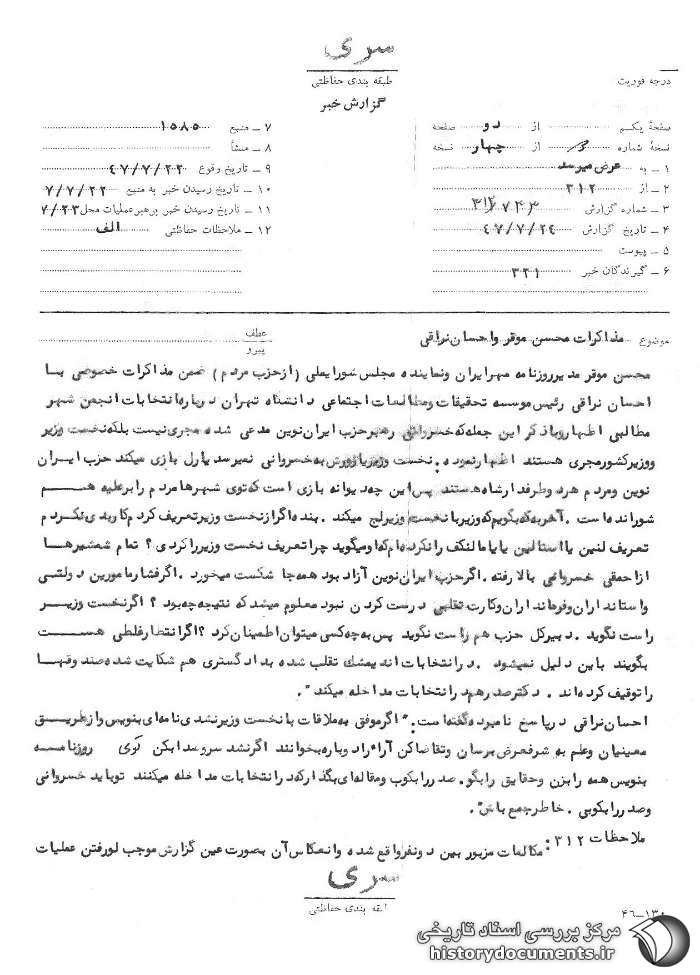 سری
طبقه بندی حفاظتی
درجه فوریت
گزارش خبر
صفحهٔ یکم از دو صفحه
نسخهٔ شماره از چهار نسخه
۱ ـ به عرض میرسد
۲ ـ از ۳۱۲
۳ ـ شماره گزارش
۴ ـ تاریخ گزارش ۴۷/۷/۲۴
۵ ـ پیوست
۶ ـ گیرندگان خبر ۳۲۱
۷ ـ منبع ۱۵۸۵
۸ ـ منشأ
۹ ـ تاریخ وقوع ۴۷/۷/۲۲
۱۰ ـ تاریخ رسیدن خبر به منبع ۷/۷/۲۲
۱۱ ـ تاریخ رسیدن خبر برهبر عملیات محل ۷/۲۳
۱۲ ـ ملاحظات حفاظتی الف
موضوع مذاکرات محسن موقر واحسان نراقی
عطف
پیرو
محسن موقر مدیرروزنامه مهرایران ونماینده مجلس شورایملی (ازحزب مردم) ضمن مذاکرات خصوصی با
احسان نراقی رئیس موسسه تحقیقات ومطالعات اجتماعی دانشگاه تهران درباره انتخابات انجمن شهر
مطالبی اظهاروباذکراین جمله که خسروانی رهبرحزب ایران نوین مدعی شده مجری نیست بلکه نخست وزیر
ووزیرکشورمجری هستند اظهارنموده: نخست وزیربازورش به خسروانی نمیرسدیارل بازی میکند حزب ایران
نوین ومردم هردوطرفدارشاه هستند پس این چه دیوانه بازی است که توی شهرهامردم را برعلیه هم
شورانده است . آخربه که بگویم که وزیربانخست وزیرلج میکند . بنده اگرازنخست وزیرتعریف کردم کاربدی نکردم
تعریف لنین یااستالین یاپامالنکف رانکرده ام که اومیگوید چراتعریف نخست وزیرراکردی؟ تمام شمشیرها
ازاحمقی خسروانی بالارفته . اگرحزب ایران نوین آزاد بود همه جا شکست میخورد . اگرفشارمامورین دولتی
واستانداران وفرمانداران وکارت تقلبی درست کردن نبود معلوم میشد که نتیجه چه بود ؟ اگرنخست وزیر
راست نگوید . دبیرکل حزب هم راست نگوید پس به چه کسی میتوان اطمینان کرد ؟ اگرانتظارغلطی هست
بگویند باین دلیل نمیشود . درانتخابات اندیمشک تقلب شده بدادگستری هم شکایت شده صندوقها
راتوقیف کرده اند . دکترصدرهم درانتخابات مداخله میکند" .
احسان نراقی درپاسخ نامبرده گفته است: " اگرموفق به ملاقات بانخست وزیرنشدی نامه ای بنویس وازطریق
معینیان وعلم به شرفعرض برسان وتقاضاکن آراء رادوباره بخوانند اگرنشد سروصدابکن توی روزنامه
بنویس همه رابزن وحقایق رابگو. صدررابکوب ومقاله ای بگذارکه درانتخابات مداخله میکنند توباید خسروانی
وصدررابکوبی . خاطرجمع باش" .
ملاحظات ۳۱۲ : مکالمات مزبوربین دونفرواقع شده وانعکاس آن بصورت عین گزارش موجب لورفتن عملیات
سری
طبقه بندی حفاظتی
۴۶ـ۱۳۰
مرکز بررسی اسناد تاریخی
historydocuments.ir